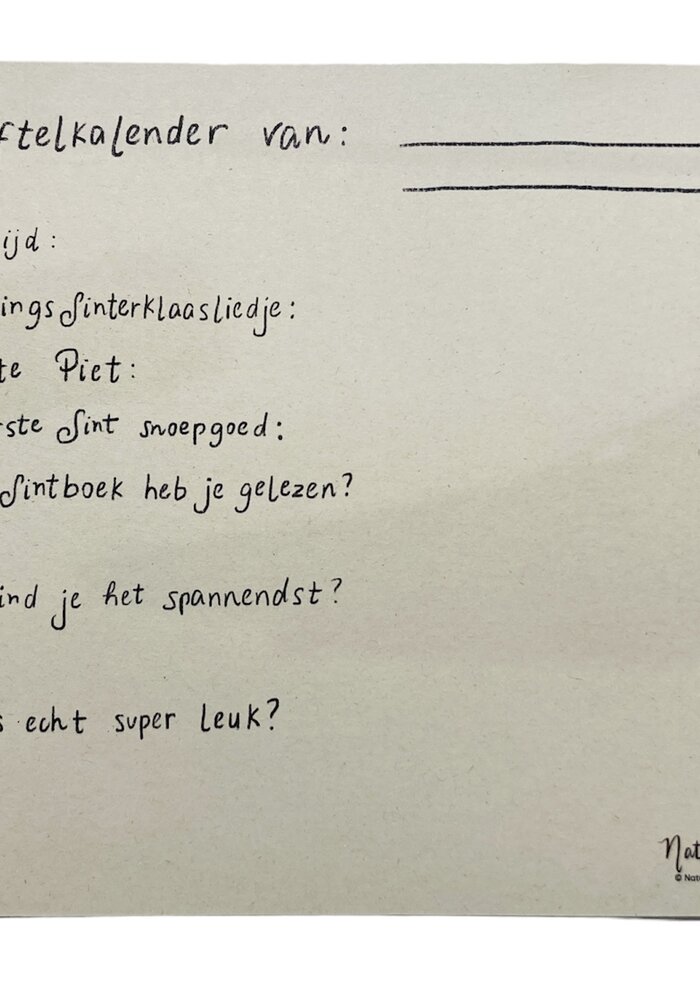 ftelkalender van:
ijd:
ings Sinterklaasliedje:
te Piet:
rste Sint snoepgoed:
Sintboek heb je gelezen?
ind je het spannendst?
s echt super leuk?
Nat
© Natu